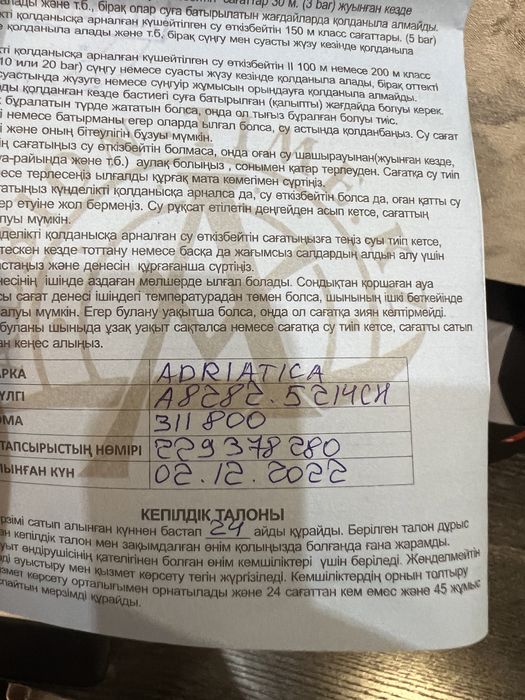 сағаттар 30 м. (3 bar) жуынған кезде
және т.б., бірақ олар суға батырылатын жағдайларда қолданыла алмайды.
қолданысқа арналған күшейтілген су өткізбейтін 150 м класс сағаттары. (5 bar)
қолданыла алады және т.б, бірақ сүңгу мен суасты жүзу кезінде қолданыла
қті қолданысқа арналған күшейтілген су өткізбейтін II 100 м немесе 200 м класс
10 или 20 bar) сүңгу немесе суасты жүзу кезінде қолданыла алады, бірақ оттекті
суастында жүзуге немесе сүңгуір жұмысын орындауға қолданыла алмайды.
ды қолданған кезде бастиегі суға батырылған (қалыпты) жағдайда болуы керек.
бұралатын түрде жататын болса, онда ол тығыз бұралған болуы тиіс.
і немесе батырманы егер оларда ылғал болса, су астында қолданбаңыз. Су сағат
і және оның бітеулігін бұзуы мүмкін.
ің сағатыңыз су өткізбейтін болмаса, онда оған су шашырауынан(жуынған кезде,
уа-райында және т.б.) аулақ болыңыз , сонымен қатар терлеуден. Сағатқа су тиіп
есе терлесеңіз ылғалды құрғақ мата көмегімен сүртіңіз.
ғатыңыз күнделікті қолданысқа арналса да, су өткізбейтін болса да, оған қатты су
ер етуіне жол бермеңіз. Су рұқсат етілетін деңгейден асып кетсе, сағаттың
луы мүмкін.
делікті қолданысқа арналған су өткізбейтін сағатыңызға теңіз суы тиіп кетсе,
тескен кезде тоттану немесе басқа да жағымсыз салдардың алдын алу үшін
астаңыз және денесін құрғағанша сүртіңіз.
несінің ішінде аздаған мөлшерде ылғал болады. Сондықтан қоршаған ауа
сы сағат денесі ішіндегі температурадан төмен болса, шынының ішкі беткейінде
алуы мүмкін. Егер булану уақытша болса, онда ол сағатқа зиян келтірмейді.
буланы шыныда ұзақ уақыт сақталса немесе сағатқа су тиіп кетсе, сағатты сатып
ан кеңес алыңыз.
АРКА ADRIATICA
ҮЛГІ A8282.5214CH
ОМА 311800
ТАПСЫРЫСТЫҢ НӨМІРІ 229378280
ЛЫНҒАН КҮН 02.12.2022
КЕПІЛДІК ТАЛОНЫ
рзімі сатып алынған күннен бастап 24 айды құрайды. Берілген талон дұрыс
ан кепілдік талон мен зақымдалған өнім қолыңызда болғанда ғана жарамды.
уыт өндірушісінің қателігінен болған өнім кемшіліктері үшін беріледі. Жөнделмейтін
ді ауыстыру мен қызмет көрсету тегін жүргізіледі. Кемшіліктердің орнын толтыру
змет көрсету орталығымен орнатылады және 24 сағаттан кем емес және 45 жұмыс
спайтын мерзімді құрайды.